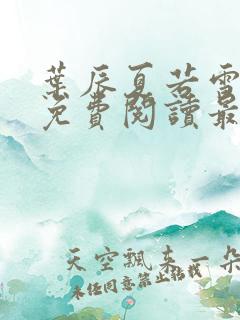 葉辰夏若雪
免費閱讀最
天空飄來一朵
未经同意禁止转载